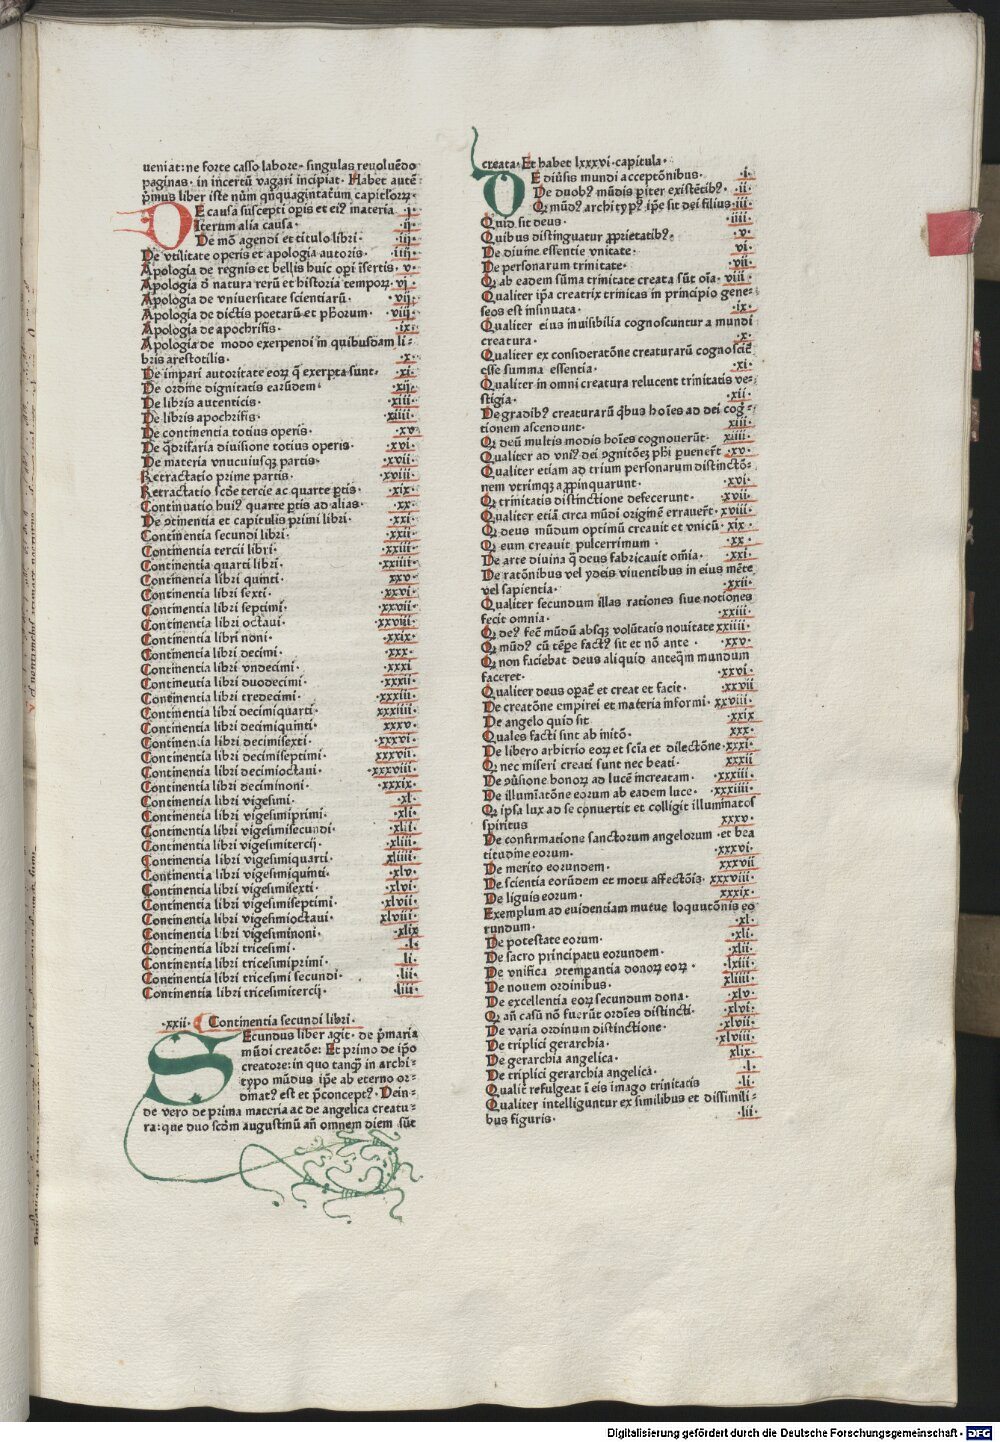 ueniat: ne forte casso labore· singulas reuoluēdo
paginas· in incertū vagari incipiat· Habet autē
p̄mus liber iste nūm qnquagintatūm capitl'oꝝ·
DE causa suscepti opīs et ei⁹ materia ·i·
Iterum alia causa· ·ij·
De mō agendi et titulo libri· ·iij·
De vtilitate operis et apologia autoris· ·iiij·
Apologia de regnis et bellis huic opi īsertis· ·v·
Apologia d̄ natura rerū et historia tempoꝝ· vj·
Apologia de vniuersitate scientiarū· ·vij·
Apologia de dictis poetarū et ph̄orum· ·viij·
Apologia de apochrifis· ·ix·
Apologia de modo exerpendi in quibusdam li-
bris arestotilis· ·x·
De impari autoritate eoꝝ q̄ exerpta sunt· ·xi·
De ordine dignitatis earūdem· ·xij·
De libris autenticis· ·xiii·
De libris apochrifis· ·xiiii·
De continentia totius operis· ·xv·
De q̄drifaria diuisione totius operis· ·xvi·
De materia vnucuiusqꝫ partis· ·xvii·
Retractatio prime partis· ·xviii·
Retractatio scd̄e tercie ac quarte p̄tis· ·xix·
Continuatio hui⁹ quarte p̄tis ad alias· ·xx·
De ꝯtinentia et capitulis primi libri· ·xxi·
Continentia secundi libri· ·xxii·
Continentia tercii libri· ·xxiii·
Continentia quarti libri· ·xxiiii·
Continentia libri quinti· ·xxv·
Continentia libri sexti· ·xxvi·
Continentia libri septimi· ·xxvii·
Continentia libri octaui· ·xxviii·
Continentia libri noni· ·xxix·
Continentia libri decimi· ·xxx·
Continentia libri vndecimi· ·xxxi
Contineutia libri duodecimi· ·xxxii·
Continentia libri tredecimi· ·xxxiii·
Continentia libri decimiquarti· ·xxxiiii·
Continentia libri decimiquinti· ·xxxv·
Continentia libri decimisexti· ·xxxvi·
Continentia libri decimiseptimi· ·xxxvii·
Continentia libri decimioctaui· ·xxxviii·
Continentia libri deciminoni· ·xxxix·
Continentia libri vigesimi· ·xl·
Continentia libri vigesimiprimi· ·xli·
Continentia libri vigesimisecundi· ·xlii·
Continentia libri vigesimitercij· ·xliii·
Continentia libri vigesimiquarti· xliiii·
Continentia libri vigesimiquinti· ·xlv·
Continentia libri vigesimisexti· ·xlvi·
Continentia libri vigesimiseptimi· ·xlvii·
Continentia libri vigesimioctaui· xlviii·
Continentia libri vigesiminoni· ·xlix
Continentia libri tricesimi· ·l·
Continentia libri tricesimiprimi· li·
Continentia libri tricesimi secundi· ·lii·
Continentia libri tricesimitercij· ·liii·
·xxii· Continentia secundi libri·
SEcundus liber agit· de p̄maria
mūdi creatōe: Et primo de ip̄o
creatore: in quo tanqꝫ in archi-
typo mūdus ip̄e ab eterno or-
dinat⁹ est et p̄concept⁹· Dein-
de vero de prima materia ac de angelica creatu-
ra: que duo scd̄m augustinū añ omnem diem sūt
creata· Et habet lxxxvi· capitula·
DE diūsis mundi acceptōnibus· ·i·
De duob⁹ mūdis p̄iter existētib⁹· ·ii·
Qꝫ mūd⁹ archityp⁹ ip̄e sit dei filius· iii·
Quid sit deus· ·iiii·
Quibus distinguatur ꝓprietatib⁹· ·v·
De diuine essentie vnitate· vi·
De personarum trinitate· ·vii·
Qꝫ ab eadem sūma trinitate creata sūt oīa· viii·
Qualiter ip̄a creatrix trinitas in principio gene-
seos est insinuata· ·ix·
Qualiter eius inuisibilia cognoscuntur a mundi
creatura· ·x·
Qualiter ex consideratōne creaturarū cognoscit̄
esse summa essentia· ·xi·
Qualiter in omni creatura relucent trinitatis ve-
stigia· ·xii·
De gradib⁹ creaturarū q̄bus hoīes ad dei cog-
tionem ascendunt· xiii·
Qꝫ deū multis modis hoīes cognouerūt· xiiii·
Qualiter ad vni⁹ dei ꝯgnitōeꝫ ph̄i ꝑuenert̄ ·xv·
Qualiter etiam ad trium personarum distinctō-
nem vtrimqꝫ aꝓpinquarunt· ·xvi·
Qꝫ trinitatis distinctione defecerunt· ·xvii·
Qualiter etiā circa mūdi originē errauert̄· xviii·
Qꝫ deus mūdum optimū creauit et vnicū· xix·
Qꝫ eum creauit pulcerrimum· ·xx·
De arte diuina q̄ deus fabricauit om̄ia· ·xxi·
De ratōnibus vel ydeis viuentibus in eius mēte
vel sapientia· ·xxii·
Qualiter secundum illas rationes siue notiones
fecit omnia· ·xxiii·
Qꝫ de⁹ fec̄ mūdū absqꝫ volūtatis nouitate xxiiii·
Qꝫ mūd⁹ cū tēpe fact⁹ sit et nō ante· ·xxv·
Qꝫ non faciebat deus aliquid anteqꝫ mundum
faceret· ·xxvi·
Qualiter deus opat̄ et creat et facit· ·xxvii
De creatōne empirei et materia informi· xxviii·
De angelo quid sit ·xxix
Quales facti sint ab initō· ·xxx·
De libero arbitrio eoꝝ et scīa et dilectōne ·xxxi·
Qꝫ nec miseri creati sunt nec beati· ·xxxii
De ꝯūsione bonoꝝ ad lucē increatam· ·xxxiii·
De illumīatōne eorum ab eadem luce· ·xxxiiii·
Qꝫ ipsa lux ad se conuertit et colligit illuminatos
spiritus ·xxxv·
De confirmatione sanctorum angelorum ·et bea
titudine eorum· ·xxxvi·
De merito eorundem· ·xxxvii
De scientia eorūdem et motu affectōis· xxxviii·
De liguis eorum· ·xxxix·
Exemplum ad euidentiam mutue loquutōnis eo
rundum· ·xl·
De potestate eorum· ·xli·
De sacro principatu eorundem· ·xlii·
De vnifica ꝯtempantia donoꝝ eoꝝ· ·lxiii·
De nouem ordinibus· xliiii·
De excellentia eoꝝ secundum dona· ·xlv·
Qꝫ añ casū nō fuerūt ordīes distincti· ·xlvi·
De varia ordinum distinctione· ·xlvii·
De triplici gerarchia· ·xlviii·
De gerarchia angelica· xlix·
De triplici gerarchia angelica· ·l·
Qualit̄ refulgeat ī eis imago trinitatis ·li·
Qualiter intelliguntur ex similibus et dissimili-
bus figuris· ·lii·
Digitalisierung gefördert durch die Deutsche Forschungsgemeinschaft · DFG